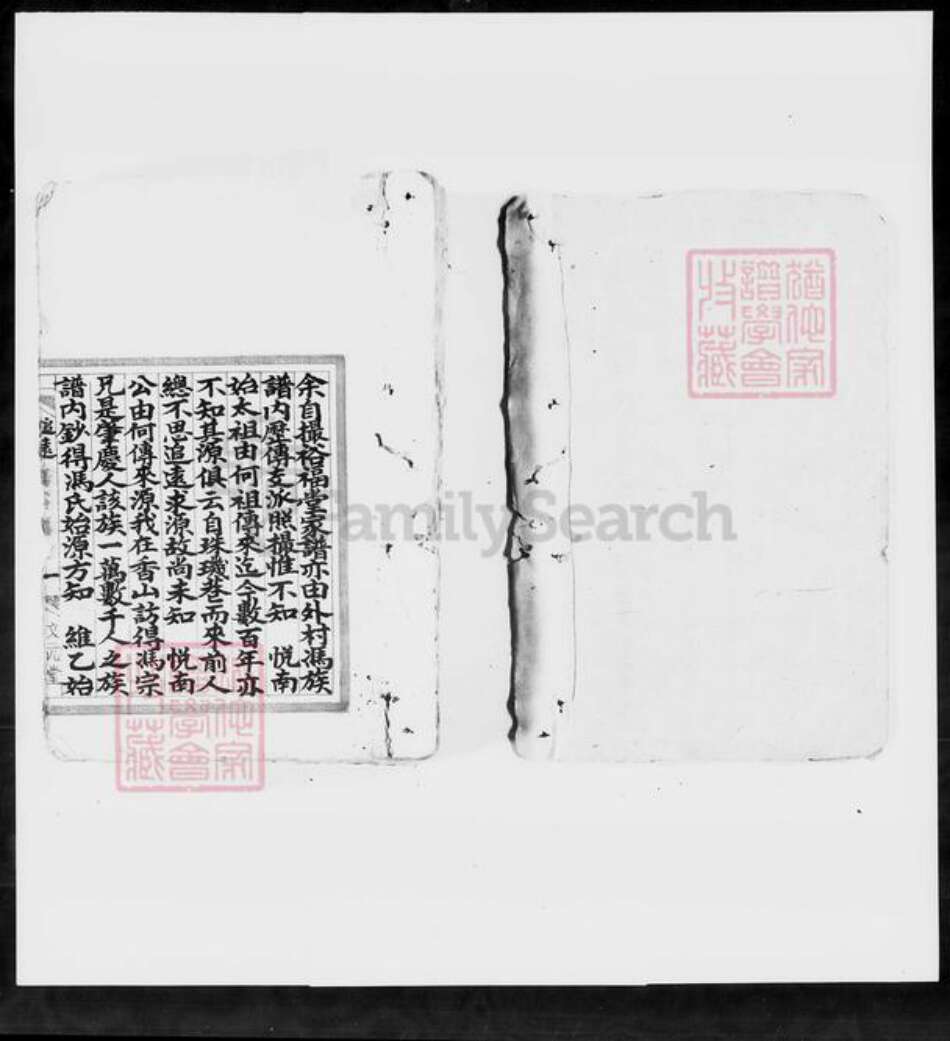 余自撮裕福堂家譜亦由外村馮族
譜內歷傳支派照撮惟不知 悅南
始太祖由何祖傳來迄今數百年亦
不知其源俱云自珠璣巷而來前人
總不思追遠求源故尚未知 悅南
公由何傳來源我在香山訪得馮宗
兄是肇慶人該族一萬數千人之族
譜內鈔得馮氏始源方知 維乙始
追遠
一
文元堂
猶他家
譜學會
收藏
猶他家
譜學會
收藏
FamilySearch